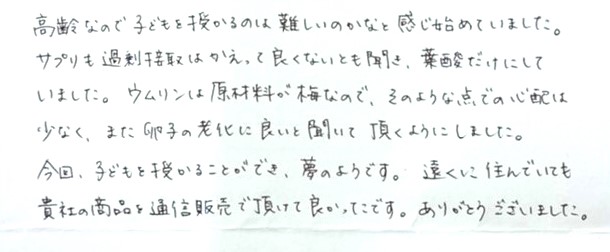 高齢なので子どもを授かるのは難しいのかなと感じ始めていました。
サプリも過剰摂取はかえって良くないとも聞き、葉酸だけにして
いました。ウムリンは原材料が梅なので、そのような点での心配は
少なく、また卵子の老化に良いと聞いて頂くようにしました。
今回、子どもを授かることができ、夢のようです。遠くに住んでいても
貴社の商品を通信販売で頂けて良かったです。ありがとうございました。